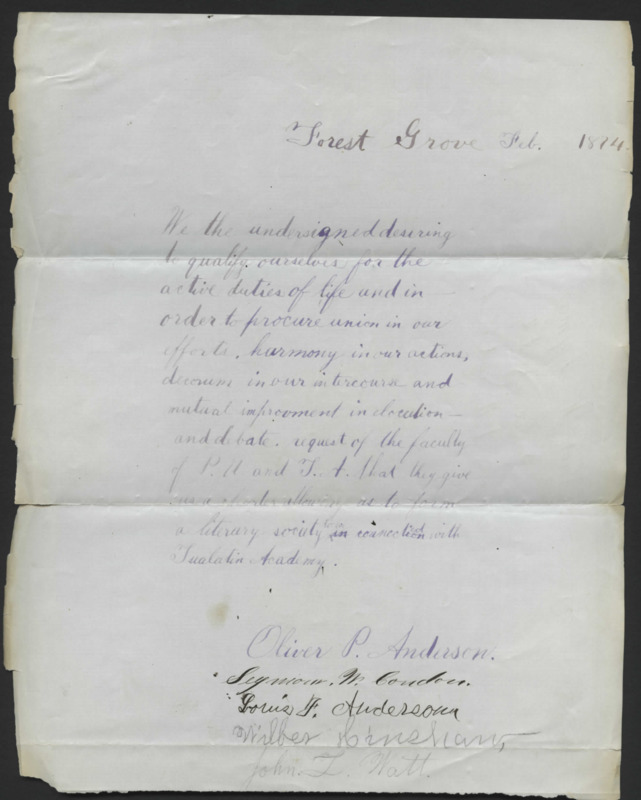 Forest Grove Feb. 1874.
We the undersigned desiring
to qualify ourselves for the
active duties of life and in
order to procure union in our
efforts, harmony in our actions,
decorum in our intercourse and
mutual improvment in elocution
and debate. request of the faculty
of P. U and T. A. that they give
us a charter allowing us to form
a literary society in connection with
Tualatin Academy.
Oliver P. Anderson.
Seymour. W. Condon.
Louis F. Anderson
Wilber Hinshaw,
John L. Watt.